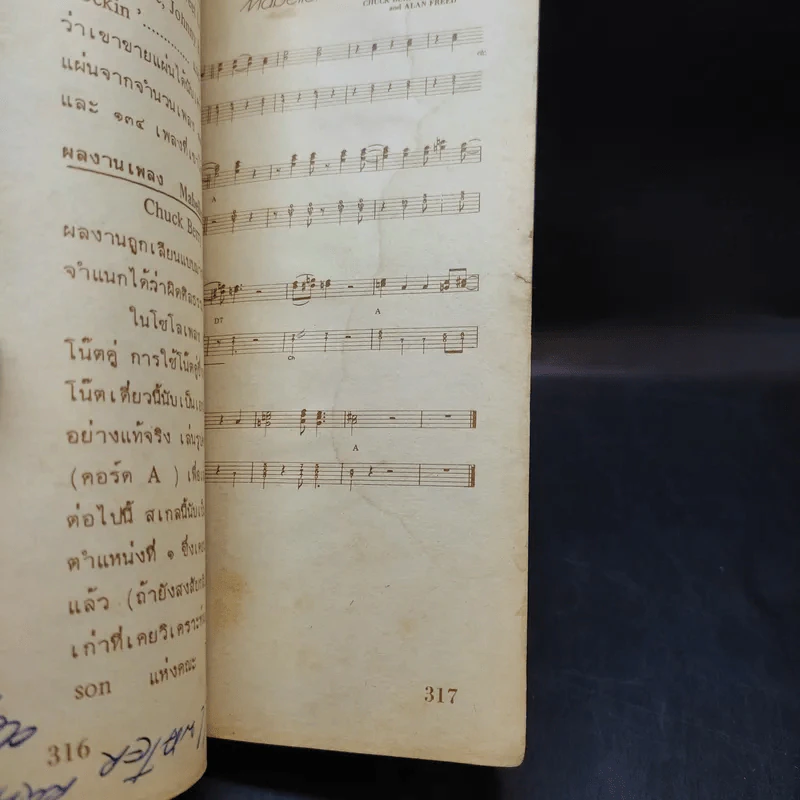 , Johnny
ockin' ............
ว่าเขาขายแผ่นได้
แผ่นจากจำนวนเพลง
และ ๑๓๔ เพลงที่
ผลงานเพลง Mabel
Chuck Berr
ผลงานถูกเลียนแบบ
จำแนกได้ว่าผิดศีล
ในโซโลเพลง
โน๊ตคู่ การใช้โน๊ตคู่
โน๊ตเดี่ยวนี้นับเป็น
อย่างแท้จริง เล่นรูป
(คอร์ด A ) เพื่อ
ต่อไปนี้ สเกลนี้นับ
ตำแหน่งที่ ๑ ซึ่งเคย
แล้ว (ถ้ายังสงสัย
เก่าที่เคยวิเคราะห์
son แห่งคณะ
316
Mabelle
CHUCK BE
and ALAN FREED
A
D7
A
Ch
A
317